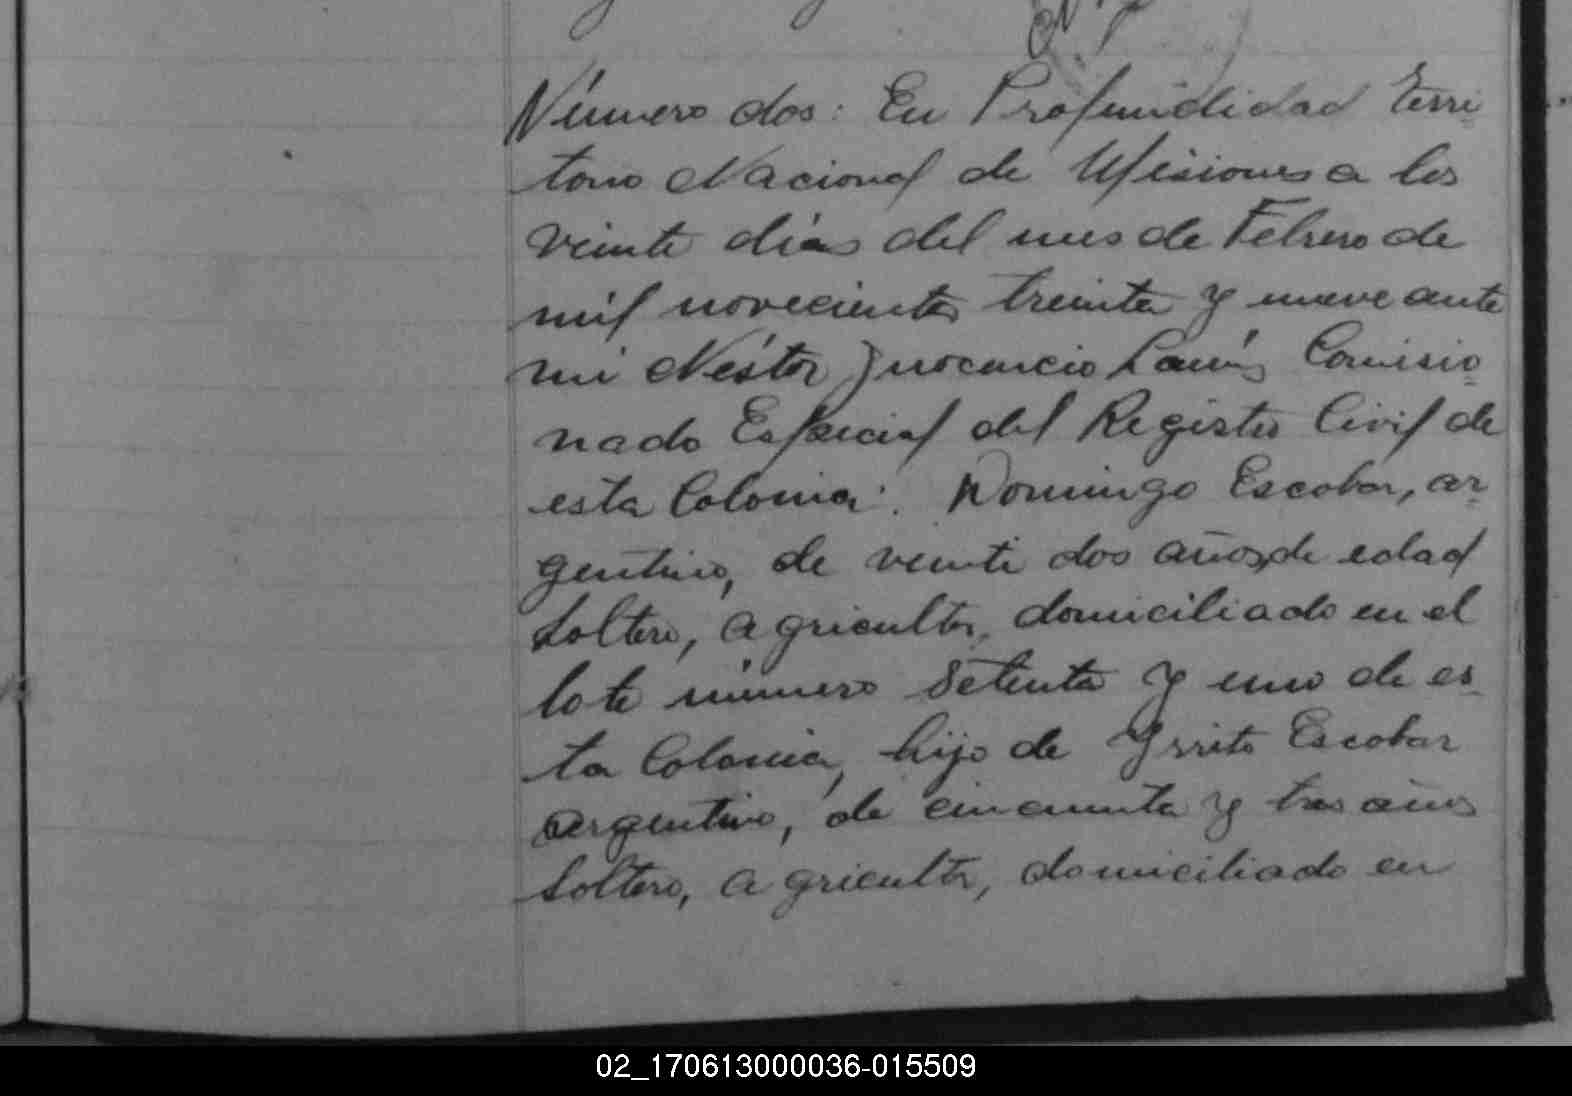 Número dos: En Profundidad Terri-
torio Nacional de Misiones a los
veinte dias del mes de Febrero de
mil novecientos treinta y nueve ante
mi Néstor Inocencio Comisio-
nado Especial del Registro Civil de
esta Colonia: Domingo Escobar, ar-
gentino, de veinti dos años, de edad
soltero, agricultor, domiciliado en el
lote número setenta y uno de es-
ta Colonia, hijo de Escobar
argentino, de cincuenta y tres años
soltero, agricultor, domiciliado en
02_170613000036-015509